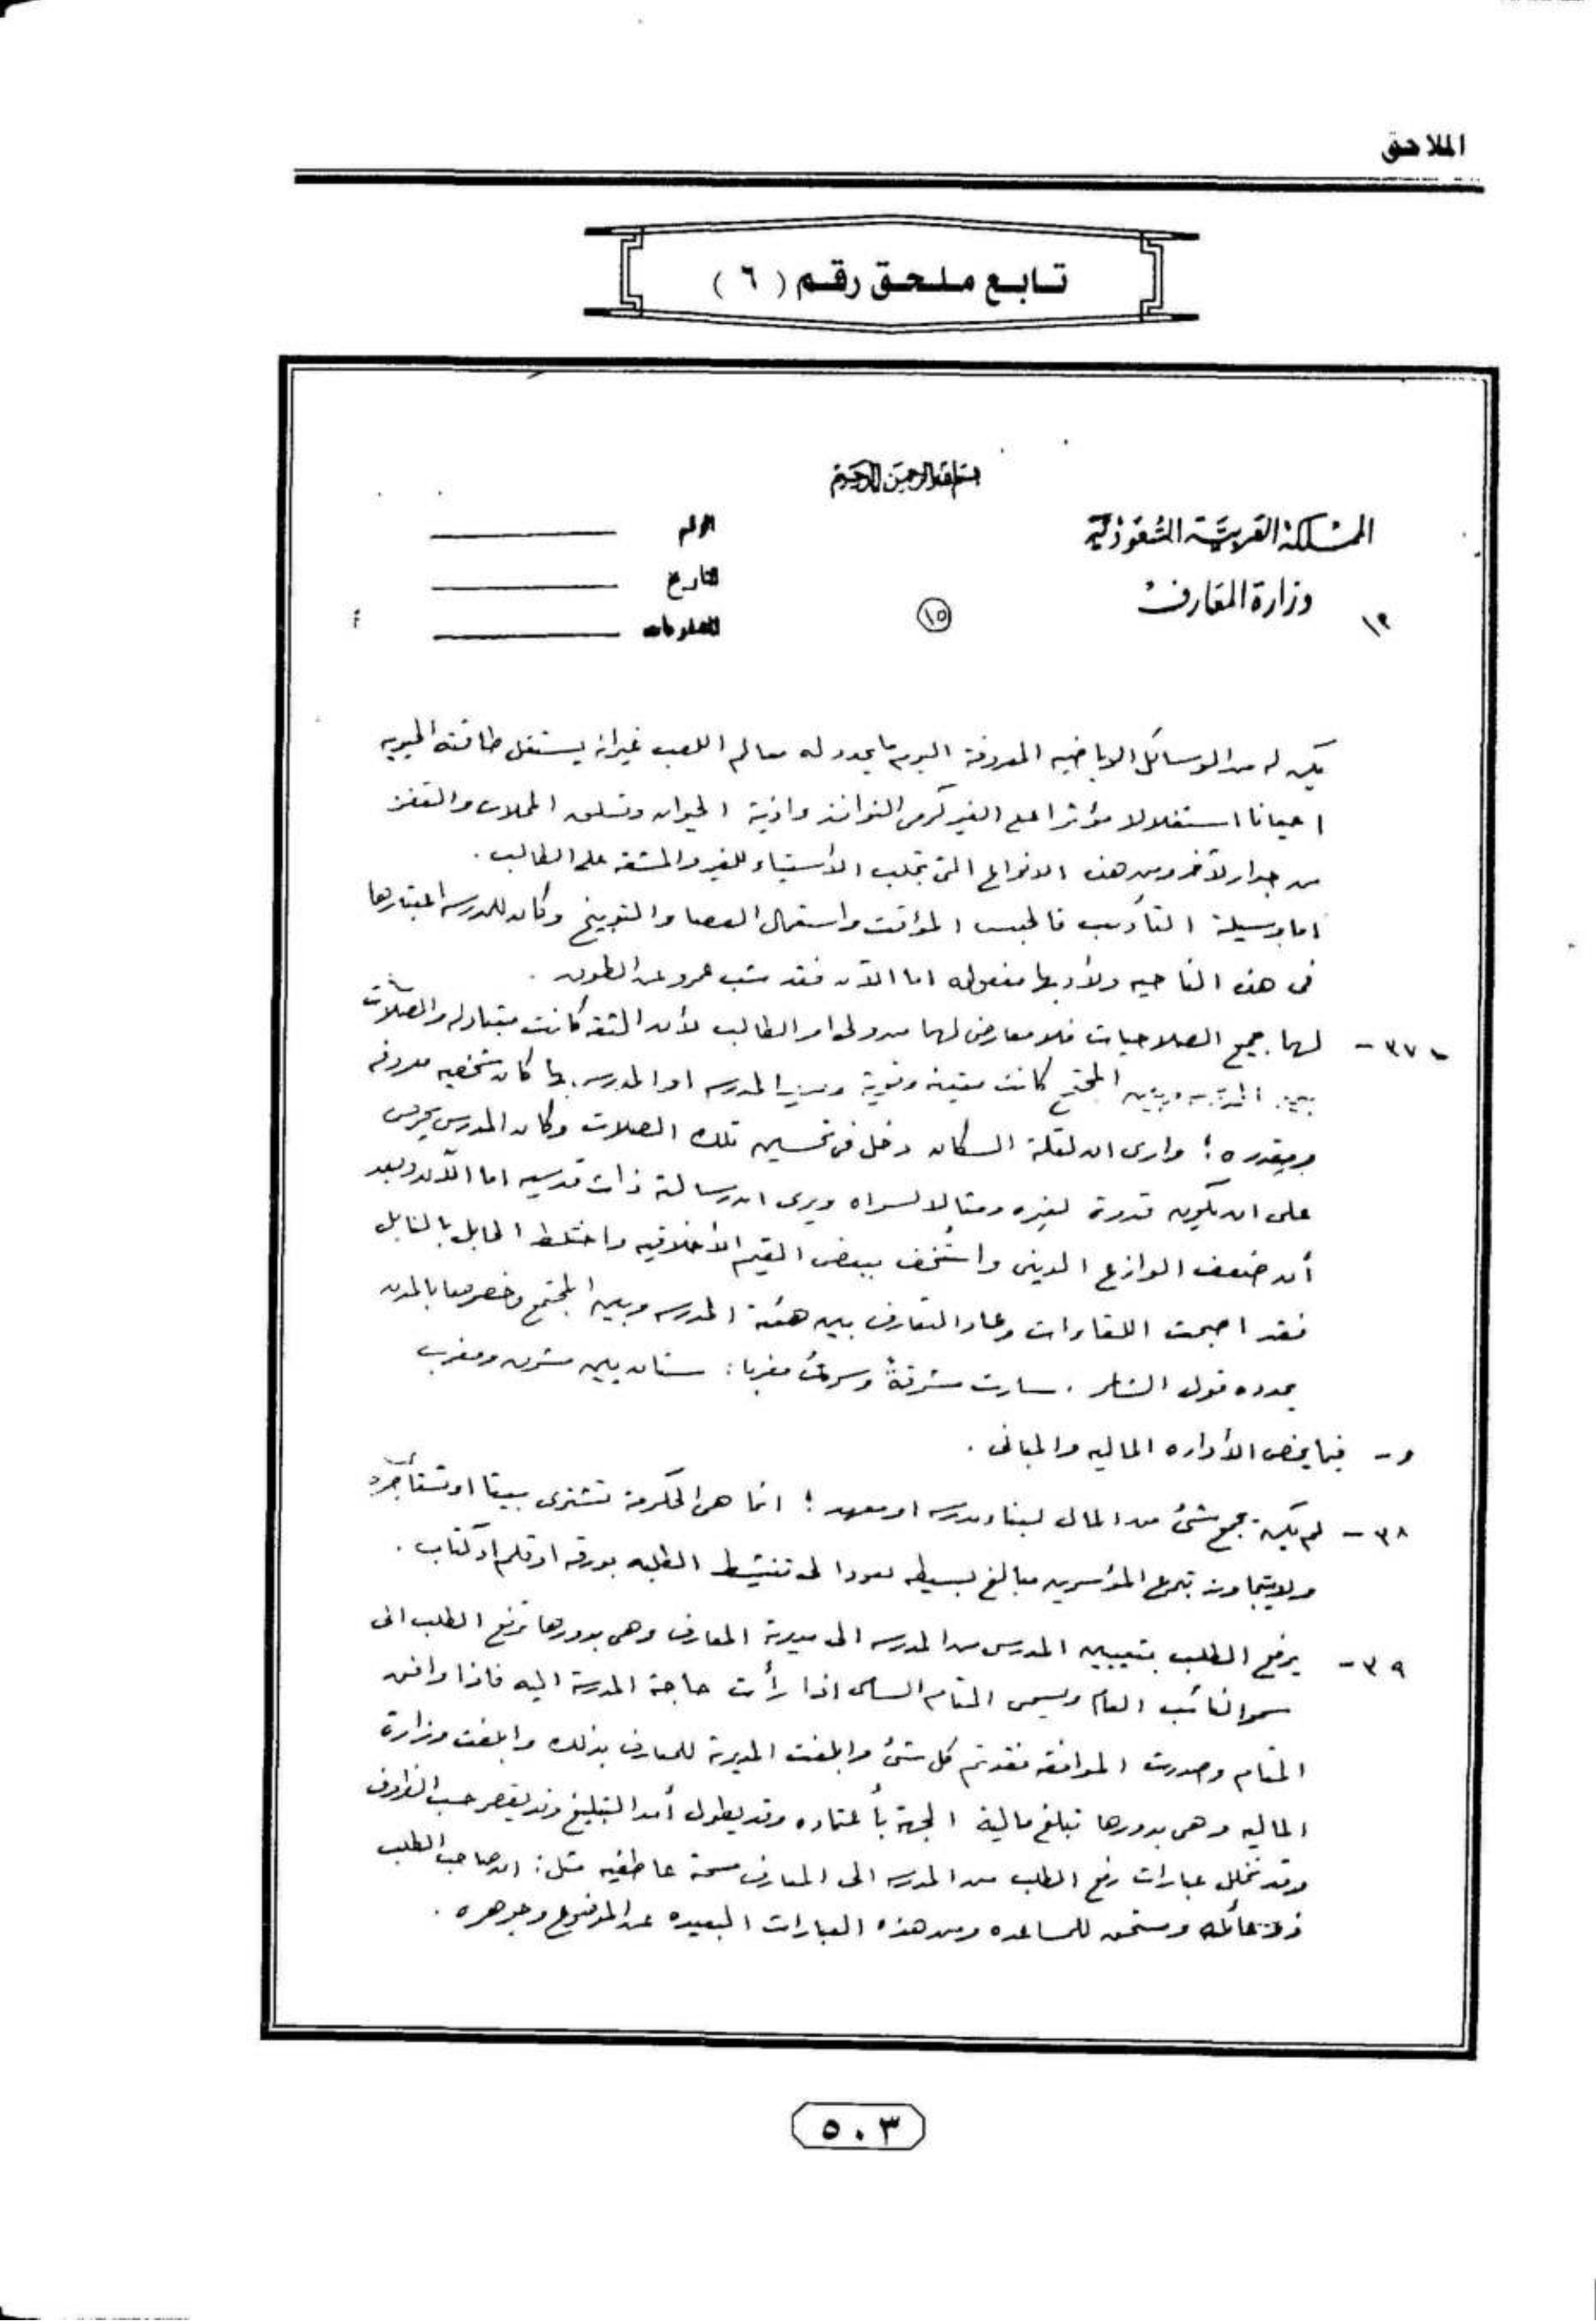 الملاحق
تابع ملحق رقم ( ٦ )
بسم الله الرحمن الرحيم
المملكة العربية السعودية
وزارة المعارف
الرقم
التاريخ
المعلومات
١٥
١٢
يكن له من الوسائل الرياضيه المعروفة اليوم ما يحدد له معالم اللعب غير انه يستغل طاقته الحيويه
احيانا استغلالا مؤثرا على الغير كرمي النوافذ واذية الحيوان وتسلق المحلات والقفز
من جدار لآخر ومن هذه الانواع التي تجلب الأستياء للغير والمشقه على الطالب .
اما وسيلة التأديب فالحبس المؤقت واستعمال العصا والتوبيخ وكان للمدرسه اعتبارها
في هذه الناحيه ولأدبها مفعوله اما الآن فقد شب عمرو عن الطوق .
٣٧ - لهما جميع الصلاحيات فلا معارض لهما من ولي امر الطالب لأن الثقه كانت متبادله والصلات
بين المدرسه وبين المجتمع كانت متينة وقوية ومدير المدرسه او المدرس بها كان شخصيه معروفه
ومقدره ؛ وارى ان لقلة السكان دخل في تحسين تلك الصلات وكان المدرس يحرص
على ان يكون قدوة لغيره ومثالا لسواه ويرى ان رسالته ذات قدسيه اما الآن وبعد
أن ضعف الوازع الديني واستخف ببعض القيم الأخلاقيه واختلط الحابل بالنابل
فقد اصبحت اللقاءات وعاد التعارف بين هيئة المدرسه وبين المجتمع وخصوصا بالمدن
يحدده قول الشاعر . سارت مشرقةً وسرت مغربا : شتان بين مشرق ومغرب
و - فيما يخص الأداره الماليه والمباني .
٣٨ - لم يكن يجمع شئ من المال لبناء مدرسه او معهد ؛ انما هي الحكومة تشتري بيتا او تستأجره
ولا يتجاوز تبرع المؤسرين مبالغ بسيطه تعود الى تنشيط الطلبه بورقه او قلم او كتاب .
٣٩ - يرفع الطلب بتعيين المدرس من المدرسه الى مديرية المعارف وهي بدورها ترفع الطلب الى
سمو النائب العام ويسمى المقام السامي اذا رأت حاجة المدرسة اليه فاذا وافق
المقام وصدرت الموافقه فقد تم كل شئ وابلغت المديرية للمعارف بذلك وابلغت وزارة
الماليه وهي بدورها تبلغ مالية الجهة بأعتماده وقد يطول أمد التبليغ وقد يقصر حسب الظروف
وقد تخلل عبارات رفع الطلب من المدرسه الى المعارف مسحة عاطفيه مثل : ان صاحب الطلب
ذو عائله ومستحق للمساعده ومن هذه العبارات البعيده عن الموضوع وجوهره .
٥٠٣